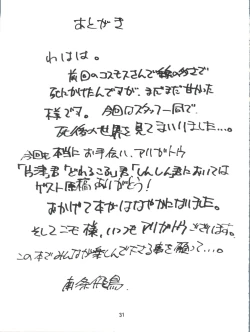 あとがき
わはは。
前回のコスモスさんで
死にかけたんですが、まだまだ甘かった
様です。今回はスタッフ一同で、
死後の世界を見てまいりました…。
今回も本当にお手伝い、アリガトウ
「片津」君「どれみる」君「しんしん」君においては
ゲスト原稿ありがとう!
おかげで本がはなやかになりました。
そしてこそ様、いつもアリガトウございます。
この本でみんなが楽しんで下さる事を願って…。
南条飛鳥
31